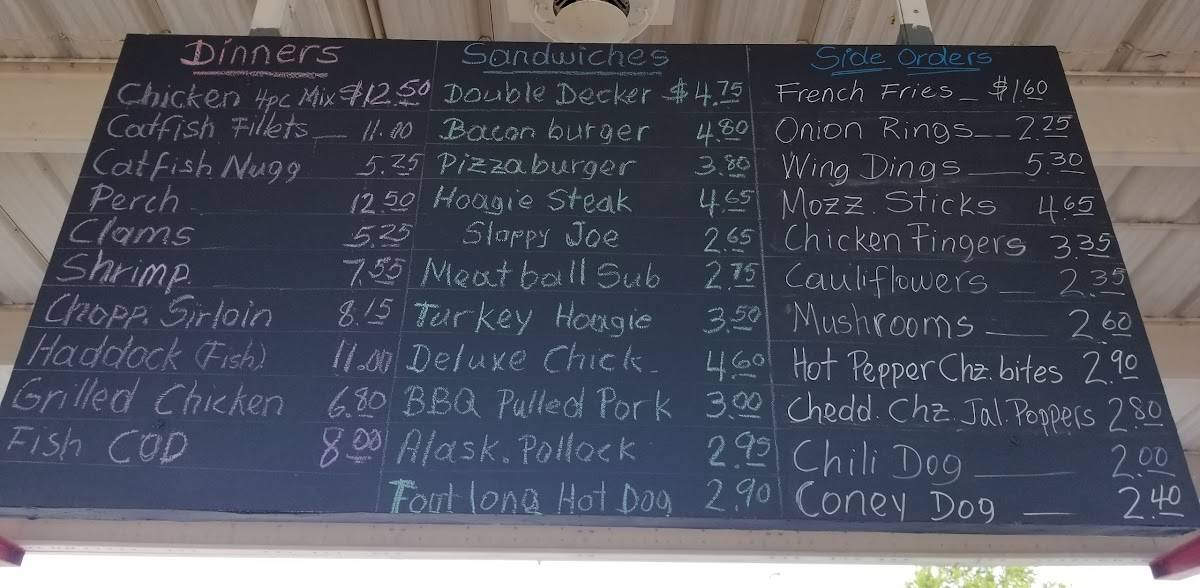 Dinners
Chicken 4pc Mix $12.50
Catfish Fillets 11.00
Catfish Nugg 5.25
Perch 12.50
Clams 5.25
Shrimp 7.55
Chopp. Sirloin 8.15
Haddock (Fish) 11.00
Grilled Chicken 6.80
Fish COD 8.00
Sandwiches
Double Decker $4.75
Bacon burger 4.80
Pizzaburger 3.80
Hoagie Steak 4.65
Sloppy Joe 2.65
Meatball Sub 2.75
Turkey Hoagie 3.50
Deluxe Chick. 4.60
BBQ Pulled Pork 3.00
Alask. Pollock 2.95
Foot long Hot Dog 2.90
Side Orders
French Fries $1.60
Onion Rings 2.25
Wing Dings 5.30
Mozz. Sticks 4.65
Chicken Fingers 3.35
Cauliflowers 2.35
Mushrooms 2.60
Hot Pepper Chz. bites 2.90
Chedd. Chz. Jal. Poppers 2.80
Chili Dog 2.00
Coney Dog 2.40